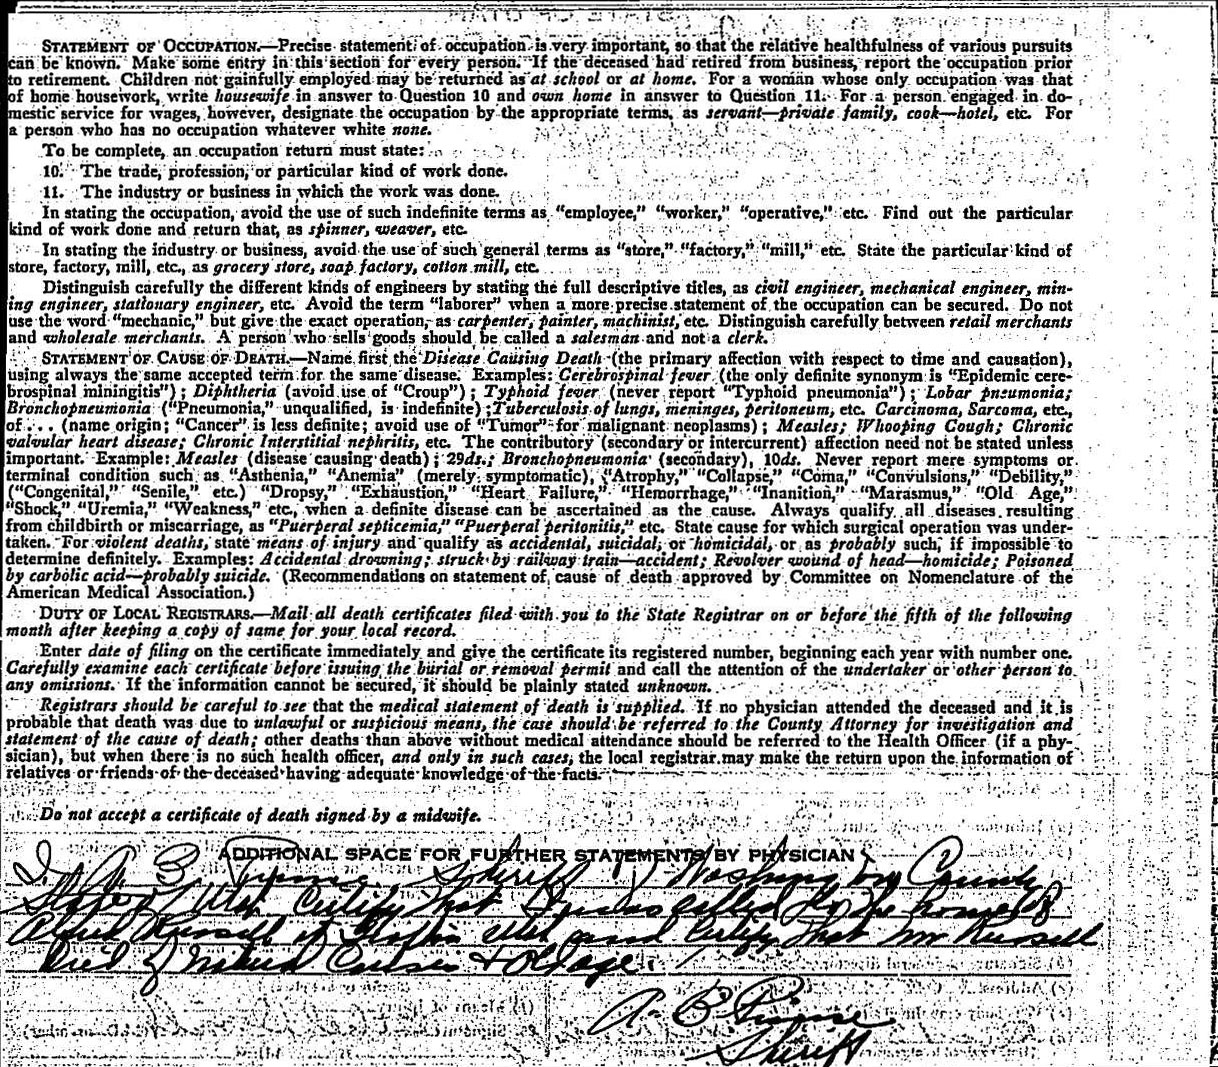 STATEMENT OF OCCUPATION.—Precise statement of occupation is very important, so that the relative healthfulness of various pursuits
can be known. Make some entry in this section for every person. If the deceased had retired from business, report the occupation prior
to retirement. Children not gainfully employed may be returned as at school or at home. For a woman whose only occupation was that
of home housework, write housewife in answer to Question 10 and own home in answer to Question 11. For a person engaged in do-
mestic service for wages, however, designate the occupation by the appropriate terms, as servant—private family, cook—hotel, etc. For
a person who has no occupation whatever white none.
To be complete, an occupation return must state:
10. The trade, profession, or particular kind of work done.
11. The industry or business in which the work was done.
In stating the occupation, avoid the use of such indefinite terms as "employee," "worker," "operative," etc. Find out the particular
kind of work done and return that, as spinner, weaver, etc.
In stating the industry or business, avoid the use of such general terms as "store," "factory," "mill," etc. State the particular kind of
store, factory, mill, etc., as grocery store, soap factory, cotton mill, etc.
Distinguish carefully the different kinds of engineers by stating the full descriptive titles, as civil engineer, mechanical engineer, min-
ing engineer, stationary engineer, etc. Avoid the term "laborer" when a more precise statement of the occupation can be secured. Do not
use the word "mechanic," but give the exact operation, as carpenter, painter, machinist, etc. Distinguish carefully between retail merchants
and wholesale merchants. A person who sells goods should be called a salesman and not a clerk.
STATEMENT OF CAUSE OF DEATH.—Name first the Disease Causing Death (the primary affection with respect to time and causation),
using always the same accepted term for the same disease. Examples: Cerebrospinal fever (the only definite synonym is "Epidemic cere-
brospinal miningitis"); Diphtheria (avoid use of "Croup"); Typhoid fever (never report "Typhoid pneumonia"); Lobar pneumonia;
Bronchopneumonia ("Pneumonia," unqualified, is indefinite); Tuberculosis of lungs, meninges, peritoneum, etc. Carcinoma, Sarcoma, etc.,
of... (name origin; "Cancer" is less definite; avoid use of "Tumor" for malignant neoplasms); Measles; Whooping Cough; Chronic
valvular heart disease; Chronic Interstitial nephritis, etc. The contributory (secondary or intercurrent) affection need not be stated unless
important. Example: Measles (disease causing death); 29ds.; Bronchopneumonia (secondary), 10ds. Never report mere symptoms or
terminal condition such as "Asthenia," "Anemia" (merely symptomatic), "Atrophy," "Collapse," "Coma," "Convulsions," "Debility,"
("Congenital," "Senile," etc.) "Dropsy," "Exhaustion," "Heart Failure," "Hemorrhage," "Inanition," "Marasmus," "Old Age,"
"Shock," "Uremia," "Weakness," etc., when a definite disease can be ascertained as the cause. Always qualify all diseases resulting
from childbirth or miscarriage, as "Puerperal septicemia," "Puerperal peritonitis," etc. State cause for which surgical operation was under-
taken. For violent deaths, state means of injury and qualify as accidental, suicidal, or homicidal, or as probably such, if impossible to
determine definitely. Examples: Accidental drowning; struck by railway train—accident; Revolver wound of head—homicide; Poisoned
by carbolic acid—probably suicide. (Recommendations on statement of cause of death approved by Committee on Nomenclature of the
American Medical Association.)
DUTY OF LOCAL REGISTRARS.—Mail all death certificates filed with you to the State Registrar on or before the fifth of the following
month after keeping a copy of same for your local record.
Enter date of filing on the certificate immediately and give the certificate its registered number, beginning each year with number one.
Carefully examine each certificate before issuing the burial or removal permit and call the attention of the undertaker or other person to
any omissions. If the information cannot be secured, it should be plainly stated unknown.
Registrars should be careful to see that the medical statement of death is supplied. If no physician attended the deceased and it is
probable that death was due to unlawful or suspicious means, the case should be referred to the County Attorney for investigation and
statement of the cause of death; other deaths than above without medical attendance should be referred to the Health Officer (if a phy-
sician), but when there is no such health officer, and only in such cases, the local registrar may make the return upon the information of
relatives or friends of the deceased having adequate knowledge of the facts.
Do not accept a certificate of death signed by a midwife.
ADDITIONAL SPACE FOR FURTHER STATEMENTS BY PHYSICIAN
I, A. B. Prince Sheriff of Washington County
State of Utah Certify that I was called to the home of
Russell in Utah and Certify that Mr Russell
Died of Natural Causes + Old age.
A. B. Prince
Sheriff